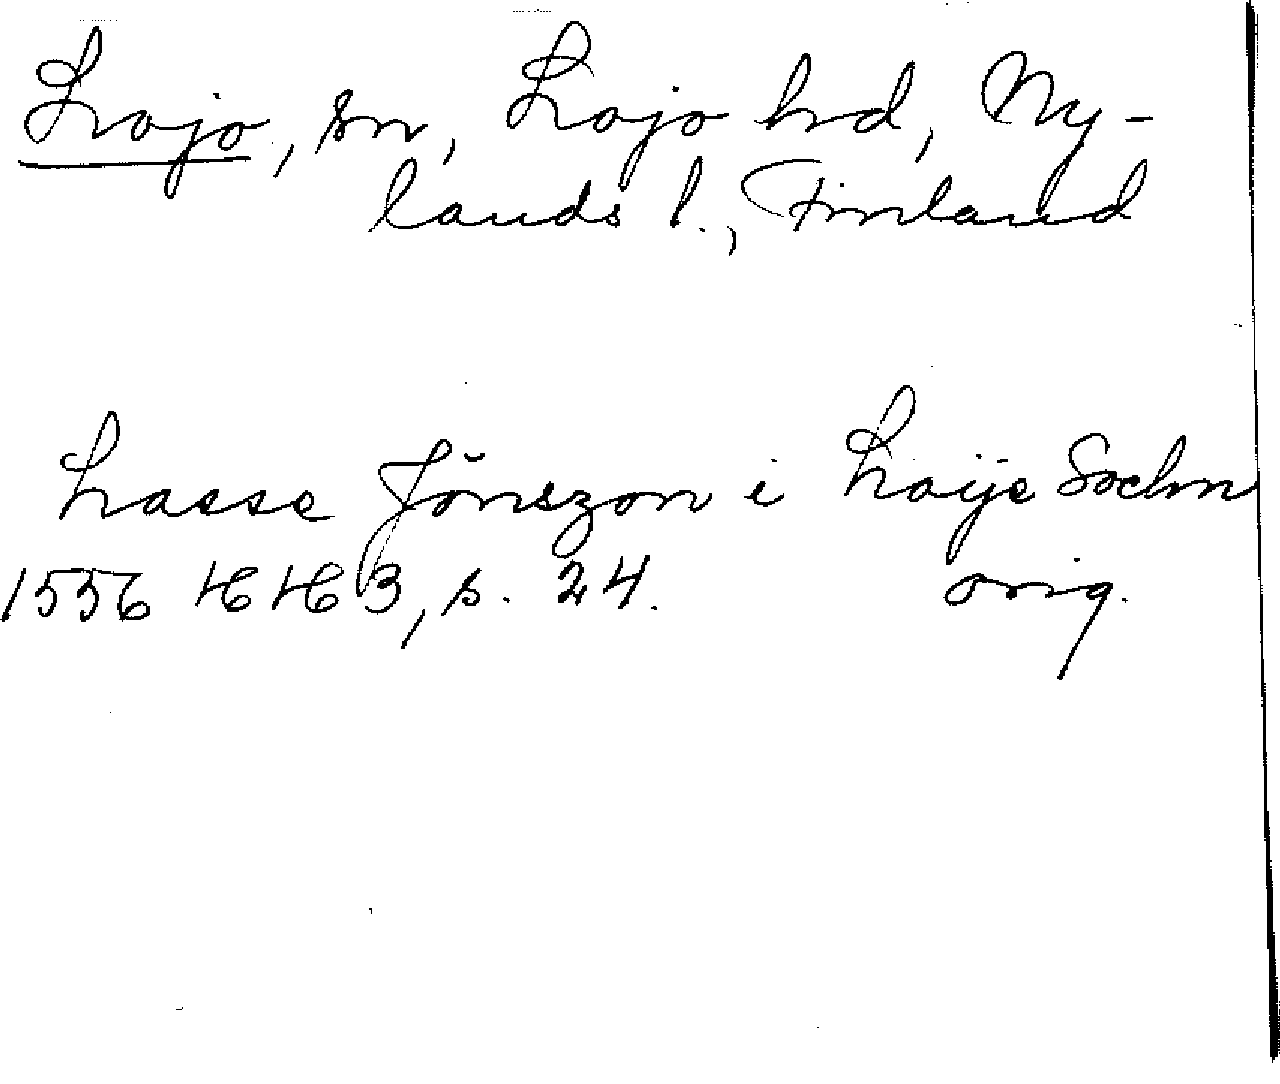 Lojo, sn, Lojo hd, Ny-
lands l., Finland
Lasse Jönszon i Loije Sochn
1556 HH 3, s. 24. orig.